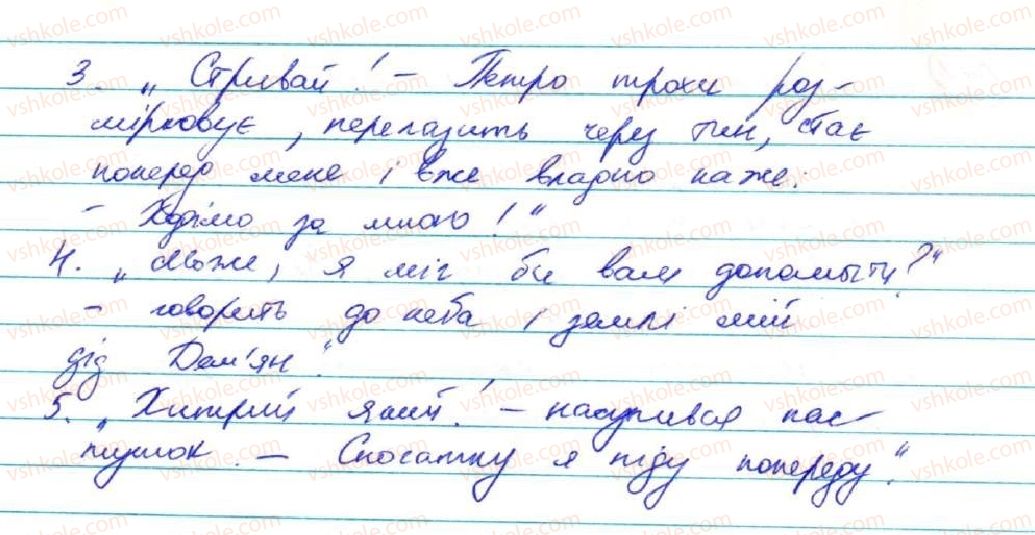 3. „Стривай! – Петро трохи роз-
мірковує, перелазить через тин, стає
поперед мене і вже владно каже:
– Ходімо за мною!“
4. „Може, я міг би вам допомогти?“
– говорить до неба і землі мій
дід Дем'ян“.
5. „Хитрий який! – насупився пас-
тушок. – Спочатку я піду попереду“.